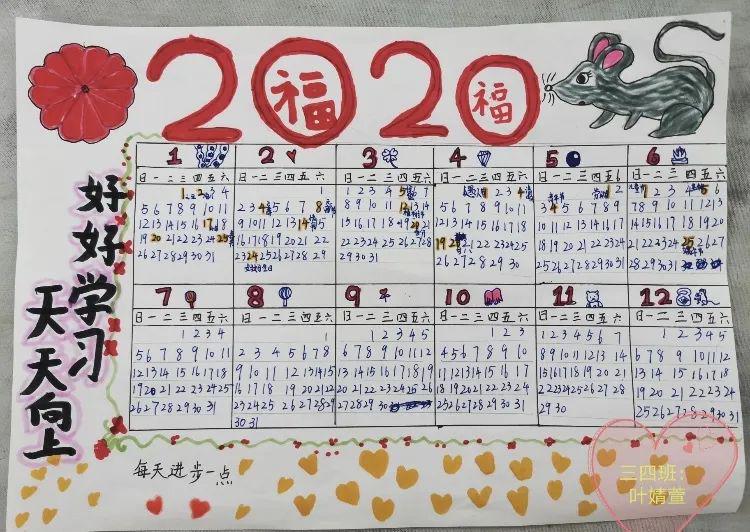 2020
福
福
好好学习
天天向上
1
日一二三四五六
1 2 3 4
5 6 7 8 9 10 11
12 13 14 15 16 17 18
19 20 21 22 23 24 25
26 27 28 29 30 31
2
日一二三四五六
1
2 3 4 5 6 7 8
9 10 11 12 13 14 15
16 17 18 19 20 21 22
23 24 25 26 27 28 29
3
日一二三四五六
1 2 3 4 5 6 7
8 9 10 11 12 13 14
15 16 17 18 19 20 21
22 23 24 25 26 27 28
29 30 31
4
日一二三四五六
1 2 3 4
5 6 7 8 9 10 11
12 13 14 15 16 17 18
19 20 21 22 23 24 25
26 27 28 29 30
5
日一二三四五六
1 2
3 4 5 6 7 8 9
6
日一二三四五六
7
日一二三四五六
1 2 3 4
5 6 7 8 9 10 11
12 13 14 15 16 17 18
19 20 21 22 23 24 25
26 27 28 29 30 31
8
日一二三四五六
1
2 3 4 5 6 7 8
9 10 11 12 13 14 15
16 17 18 19 20 21 22
23 24 25 26 27 28 29
30 31
9
日一二三四五六
1 2 3 4 5
6 7 8 9 10 11 12
13 14 15 16 17 18 19
20 21 22 23 24 25 26
27 28 29 30
10
日一二三四五六
1 2 3
4 5 6 7 8 9 10
11 12 13 14 15 16 17
18 19 20 21 22 23 24
25 26 27 28 29 30 31
11
日一二三四五六
1 2 3 4 5 6 7
8 9 10 11 12 13 14
29 30
12
日一二三四五六
1 2 3 4 5
6 7 8 9 10 11 12
13 14 15 16 17 18
19 20 21 22 23 24
25 26 27 28 29 30 31
每天进步一点
三四班：
叶婧萱